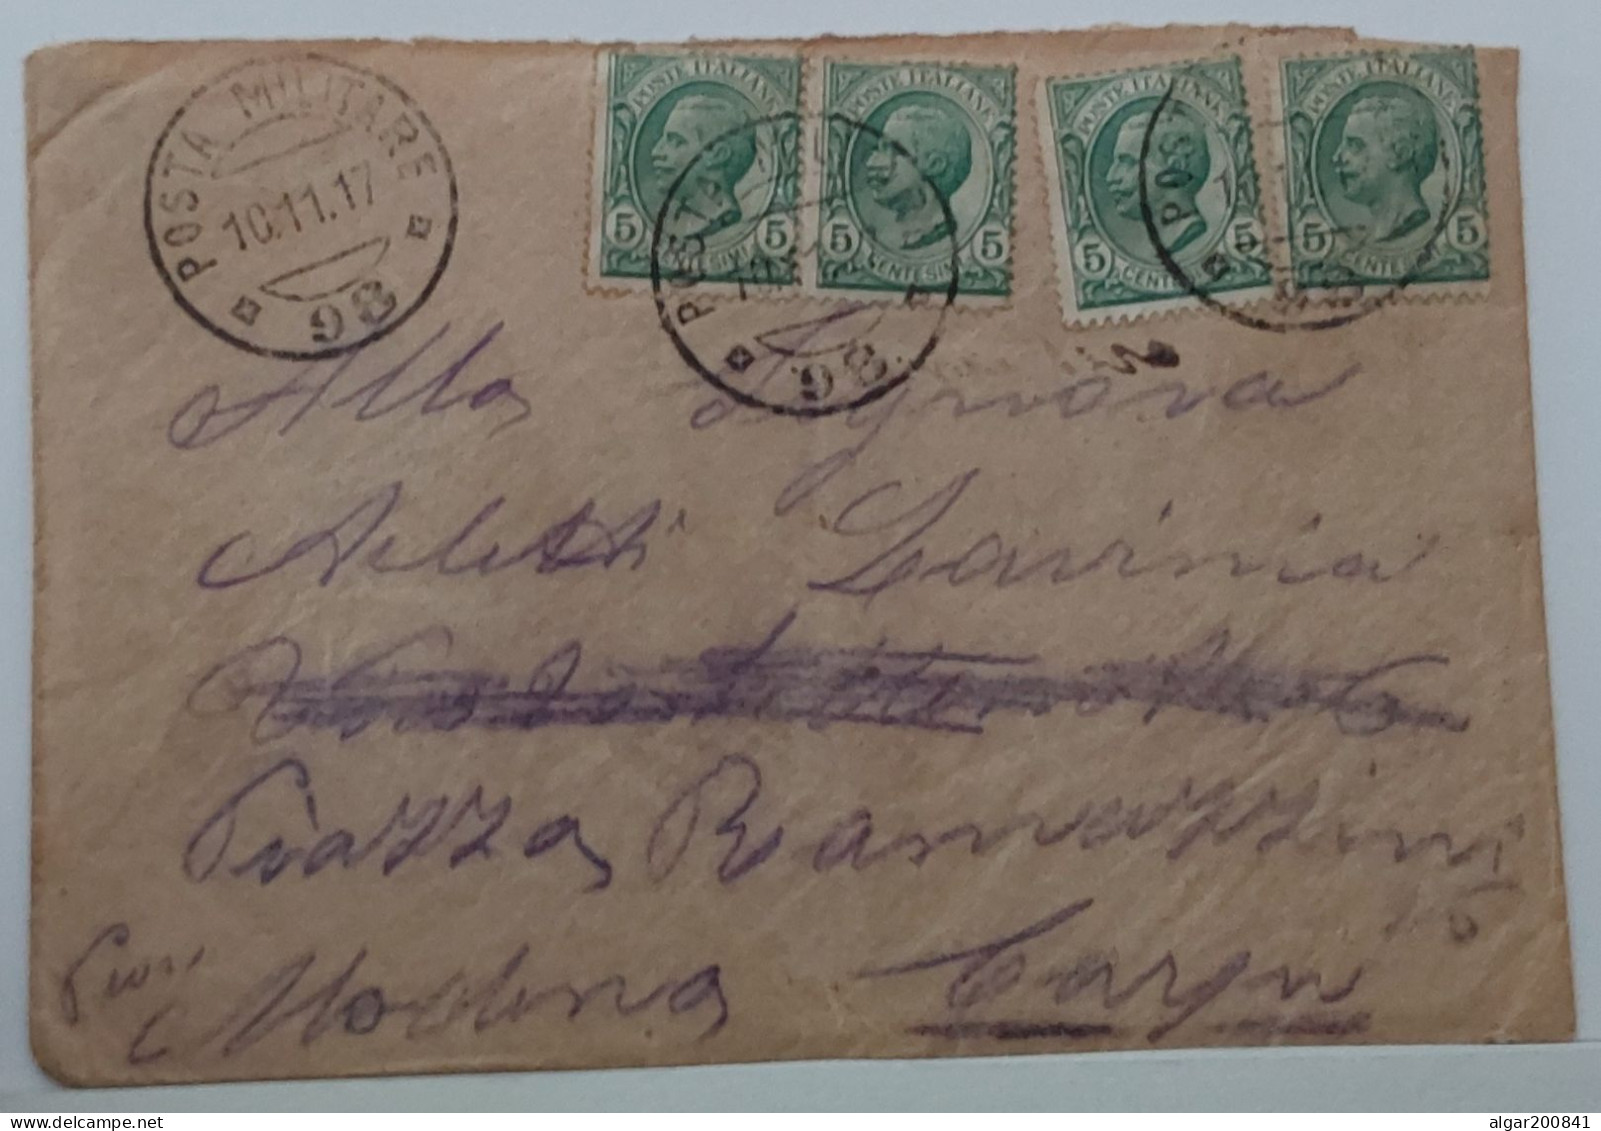 POSTA MILITARE
10.11.17
98
POSTE ITALIANE
5 CENTESIMI 5
POSTE ITALIANE
5 CENTESIMI 5
POSTE ITALIANE
5 CENTESIMI 5
POSTE ITALIANE
5 CENTESIMI 5
POSTA MILITARE
98
POST
Alla Signora
Lavinia
Piazza Ramazzini
Modena Carpi
algar200841